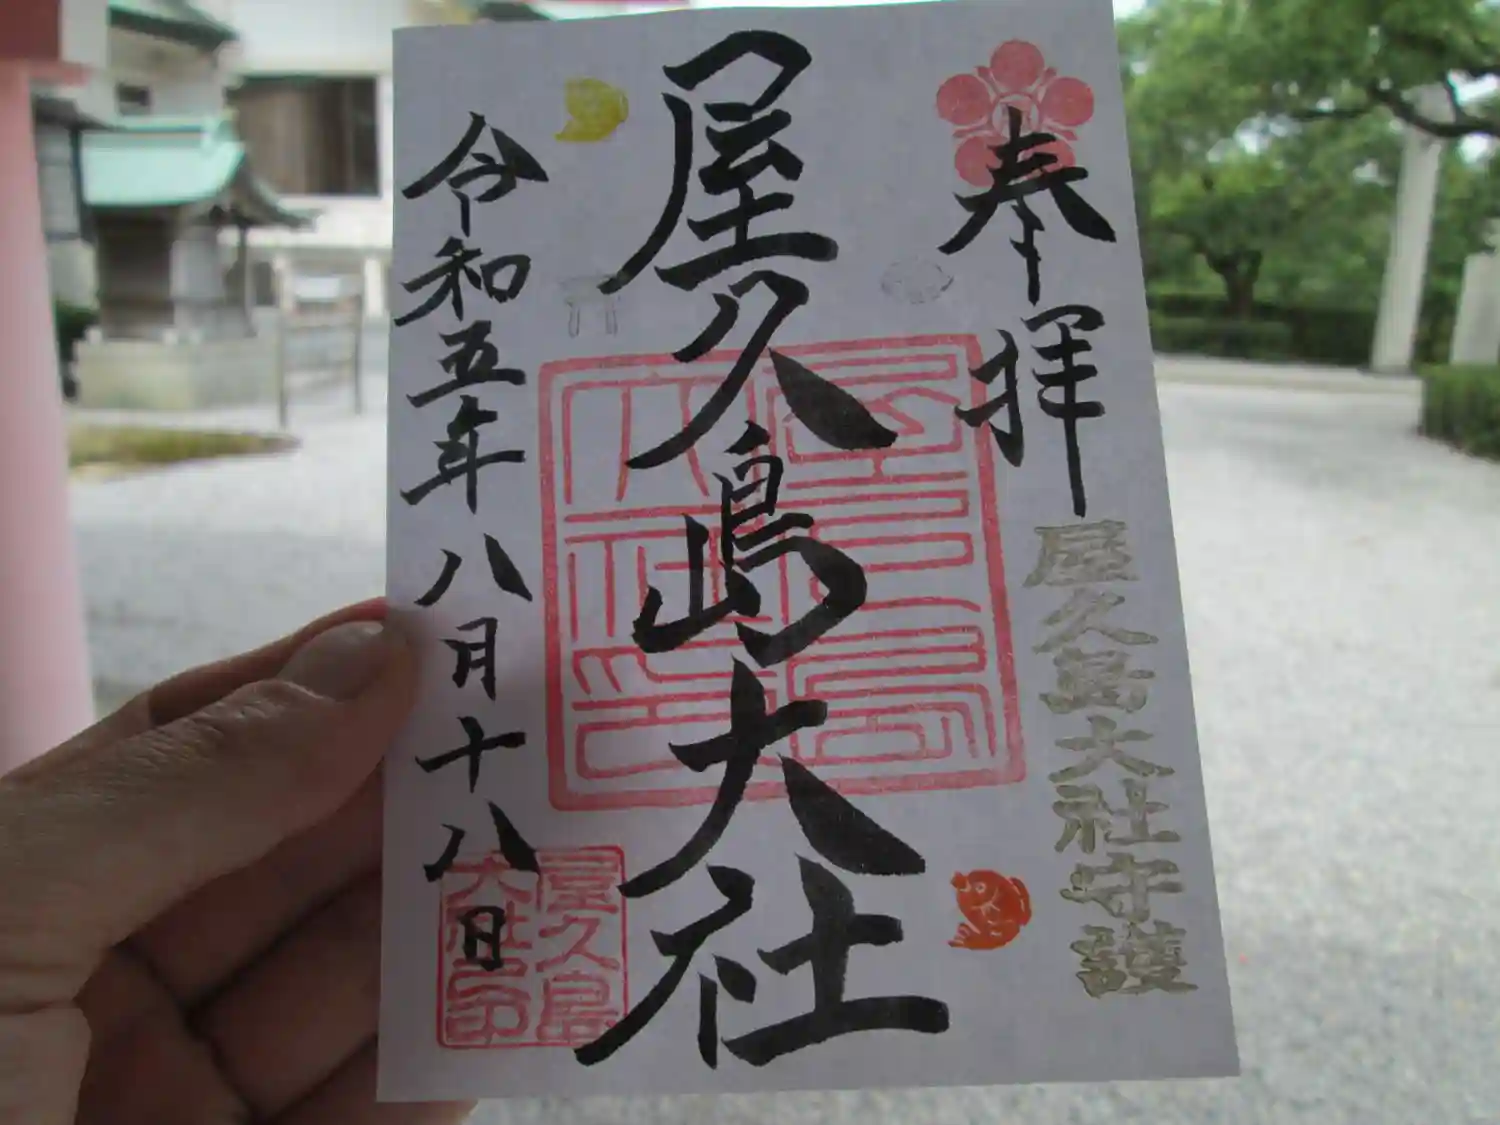 奉拝
屋久島大社守護
屋久島大社
令和五年八月十八日
屋久島
大社印
屋久島
大社印